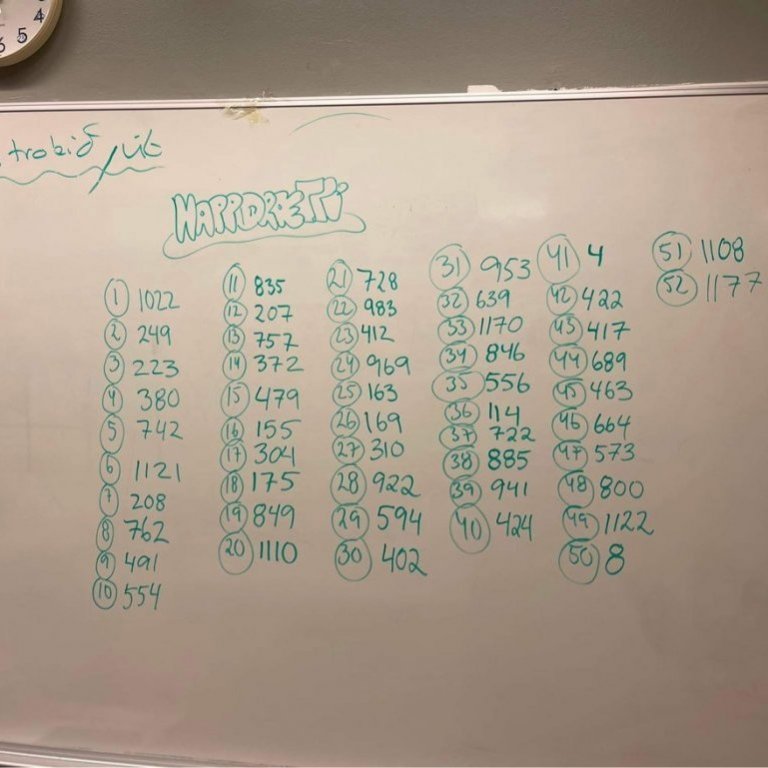 4
5
6
trobið út
HAPPDRÆTTI
1 1022
2 249
3 223
4 380
5 742
6 1121
7 208
8 762
9 491
10 554
11 835
12 207
13 757
14 372
15 479
16 155
17 304
18 175
19 849
20 1110
21 728
22 983
23 412
24 969
25 163
26 169
27 310
28 922
29 594
30 402
31 953
32 639
33 1170
34 846
35 556
36 114
37 722
38 885
39 941
40 424
41 4
42 422
43 417
44 689
45 463
46 664
47 573
48 800
49 1122
50 8
51 1108
52 1177